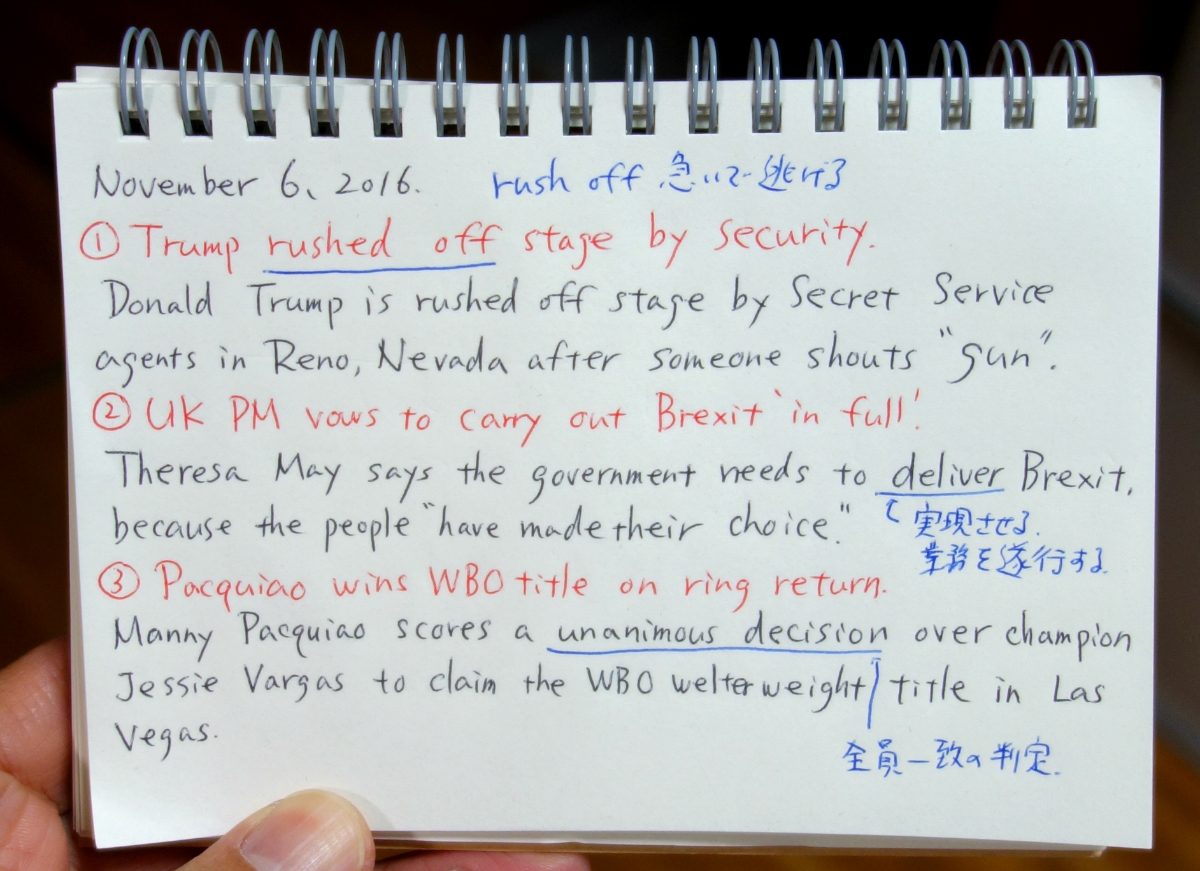 November 6、2016. rush off 急いで逃げる
① Trump rushed off stage by security.
Donald Trump is rushed off stage by Secret Service
agents in Reno, Nevada after someone shouts "gun".
② UK PM vows to carry out Brexit 'in full'.
Theresa May says the government needs to deliver Brexit,
because the people "have made their choice."
実現させる.
業務を遂行する
③ Pacquiao wins WBO title on ring return.
Manny Pacquiao scores a unanimous decision over champion
Jessie Vargas to claim the WBO welterweight title in Las
Vegas.
全員一致の判定.